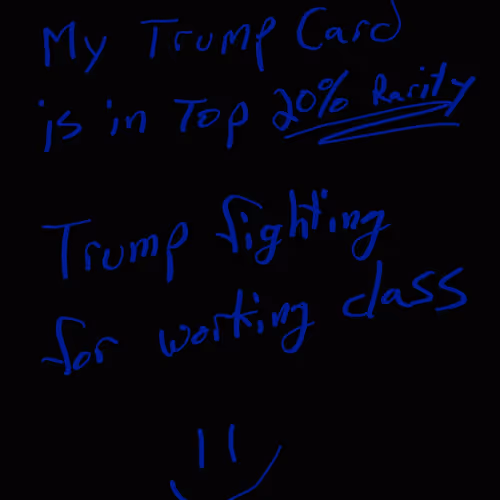 My Trump Card
is in Top 20% Rarity
Trump fighting
for working class